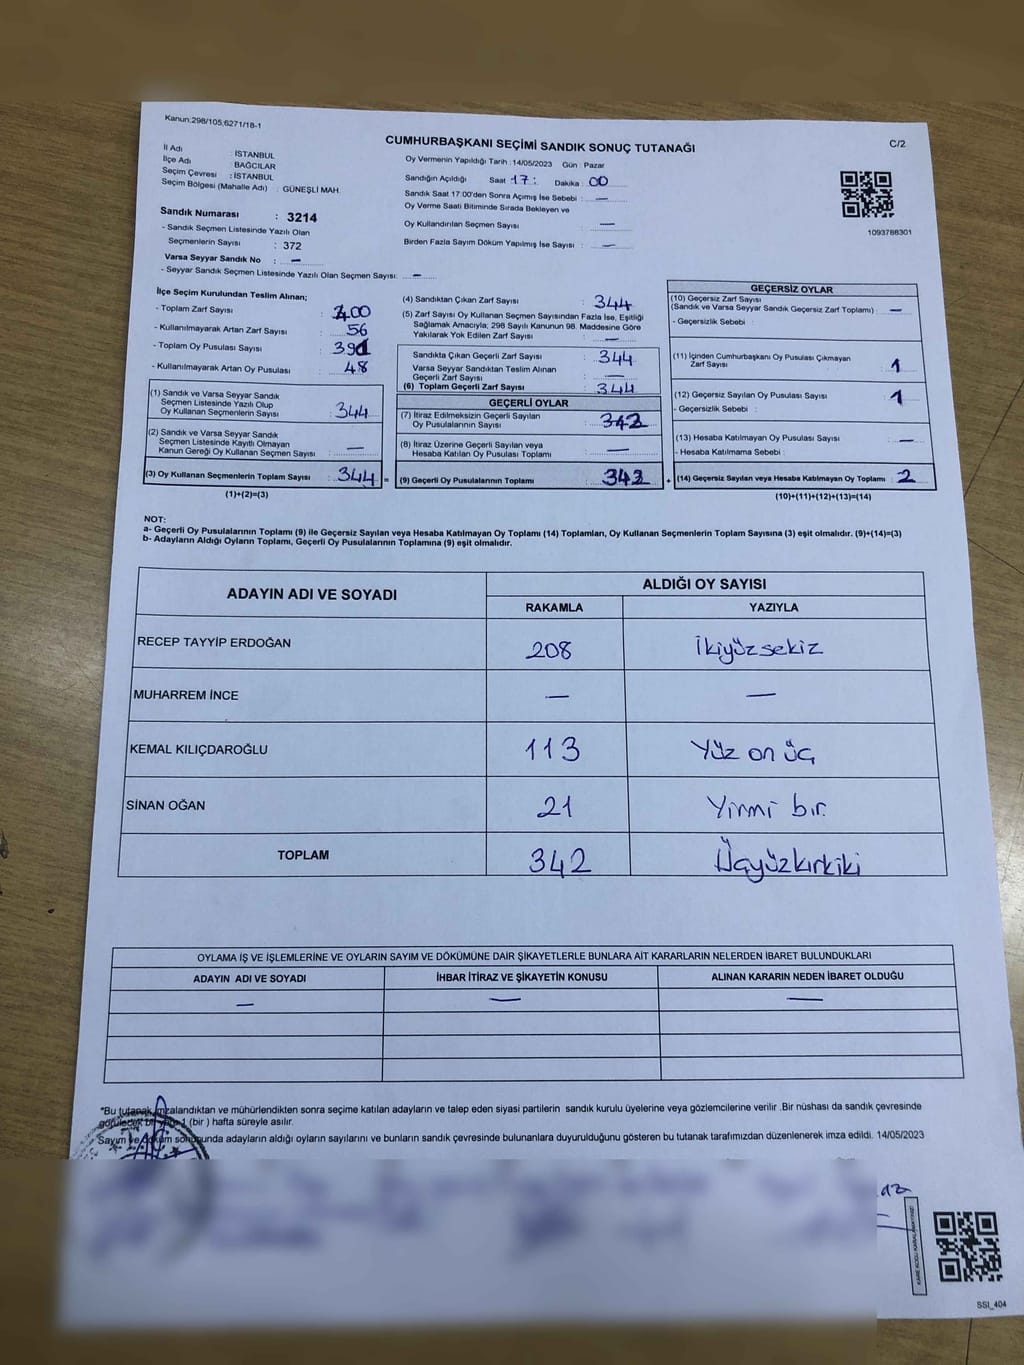 Kanun:298/105,6271/18-1
CUMHURBAŞKANI SEÇİMİ SANDIK SONUÇ TUTANAĞI
C/2
İl Adı : İSTANBUL
İlçe Adı : BAĞCILAR
Seçim Çevresi : İSTANBUL
Seçim Bölgesi (Mahalle Adı) : GÜNEŞLİ MAH.
Sandık Numarası : 3214
- Sandık Seçmen Listesinde Yazılı Olan
Seçmenlerin Sayısı : 372
Varsa Seyyar Sandık No : —
- Seyyar Sandık Seçmen Listesinde Yazılı Olan Seçmen Sayısı: —
Oy Vermenin Yapıldığı Tarih : 14/05/2023 Gün : Pazar
Sandığın Açıldığı Saat 17: Dakika : 00
Sandık Saat 17:00'den Sonra Açımış İse Sebebi : —
Oy Verme Saati Bitiminde Sırada Bekleyen ve
Oy Kullandırılan Seçmen Sayısı : —
Birden Fazla Sayım Döküm Yapılmış İse Sayısı : —
1093788301
İlçe Seçim Kurulundan Teslim Alınan;
- Toplam Zarf Sayısı : 400
- Kullanılmayarak Artan Zarf Sayısı : 56
- Toplam Oy Pusulası Sayısı :
- Kullanılmayarak Artan Oy Pusulası : 48
(1) Sandık ve Varsa Seyyar Sandık
Seçmen Listesinde Yazılı Olup
Oy Kullanan Seçmenlerin Sayısı : 344
(2) Sandık ve Varsa Seyyar Sandık
Seçmen Listesinde Kayıtlı Olmayan
Kanun Gereği Oy Kullanan Seçmen Sayısı : —
(3) Oy Kullanan Seçmenlerin Toplam Sayısı : 344 =
(1)+(2)=(3)
(4) Sandıktan Çıkan Zarf Sayısı : 344
(5) Zarf Sayısı Oy Kullanan Seçmen Sayısından Fazla İse, Eşitliği
Sağlamak Amacıyla; 298 Sayılı Kanunun 98. Maddesine Göre
Yakılarak Yok Edilen Zarf Sayısı : —
Sandıkta Çıkan Geçerli Zarf Sayısı : 344
Varsa Seyyar Sandıktan Teslim Alınan
Geçerli Zarf Sayısı : —
(6) Toplam Geçerli Zarf Sayısı : 344
GEÇERLİ OYLAR
(7) İtiraz Edilmeksizin Geçerli Sayılan
Oy Pusulalarının Sayısı : 342
(8) İtiraz Üzerine Geçerli Sayılan veya
Hesaba Katılan Oy Pusulası Toplamı : —
(9) Geçerli Oy Pusulalarının Toplamı : 342 +
GEÇERSİZ OYLAR
(10) Geçersiz Zarf Sayısı
(Sandık ve Varsa Seyyar Sandık Geçersiz Zarf Toplamı) : —
- Geçersizlik Sebebi :
(11) İçinden Cumhurbaşkanı Oy Pusulası Çıkmayan
Zarf Sayısı : 1
(12) Geçersiz Sayılan Oy Pusulası Sayısı : 1
- Geçersizlik Sebebi :
(13) Hesaba Katılmayan Oy Pusulası Sayısı : —
- Hesaba Katılmama Sebebi :
(14) Geçersiz Sayılan veya Hesaba Katılmayan Oy Toplamı : 2
(10)+(11)+(12)+(13)=(14)
NOT:
a- Geçerli Oy Pusulalarının Toplamı (9) ile Geçersiz Sayılan veya Hesaba Katılmayan Oy Toplamı (14) Toplamları, Oy Kullanan Seçmenlerin Toplam Sayısına (3) eşit olmalıdır. (9)+(14)=(3)
b- Adayların Aldığı Oyların Toplamı, Geçerli Oy Pusulalarının Toplamına (9) eşit olmalıdır.
ADAYIN ADI VE SOYADI
ALDIĞI OY SAYISI
RAKAMLA YAZIYLA
RECEP TAYYİP ERDOĞAN 208 İkiyüzsekiz
MUHARREM İNCE — —
KEMAL KILIÇDAROĞLU 113 Yüz on üç
SİNAN OĞAN 21 Yirmi bir
TOPLAM 342 Üçyüzkırkiki
OYLAMA İŞ VE İŞLEMLERİNE VE OYLARIN SAYIM VE DÖKÜMÜNE DAİR ŞİKAYETLERLE BUNLARA AİT KARARLARIN NELERDEN İBARET BULUNDUKLARI
ADAYIN ADI VE SOYADI İHBAR İTİRAZ VE ŞİKAYETİN KONUSU ALINAN KARARIN NEDEN İBARET OLDUĞU
— — —
*Bu tutanak imzalandıktan ve mühürlendikten sonra seçime katılan adayların ve talep eden siyasi partilerin sandık kurulu üyelerine veya gözlemcilerine verilir .Bir nüshası da sandık çevresinde
görülecek bir yere 1 (bir ) hafta süreyle asılır.
Sayım ve döküm sonucunda adayların aldığı oyların sayılarını ve bunların sandık çevresinde bulunanlara duyurulduğunu gösteren bu tutanak tarafımızdan düzenlenerek imza edildi. 14/05/2023
SSI_404